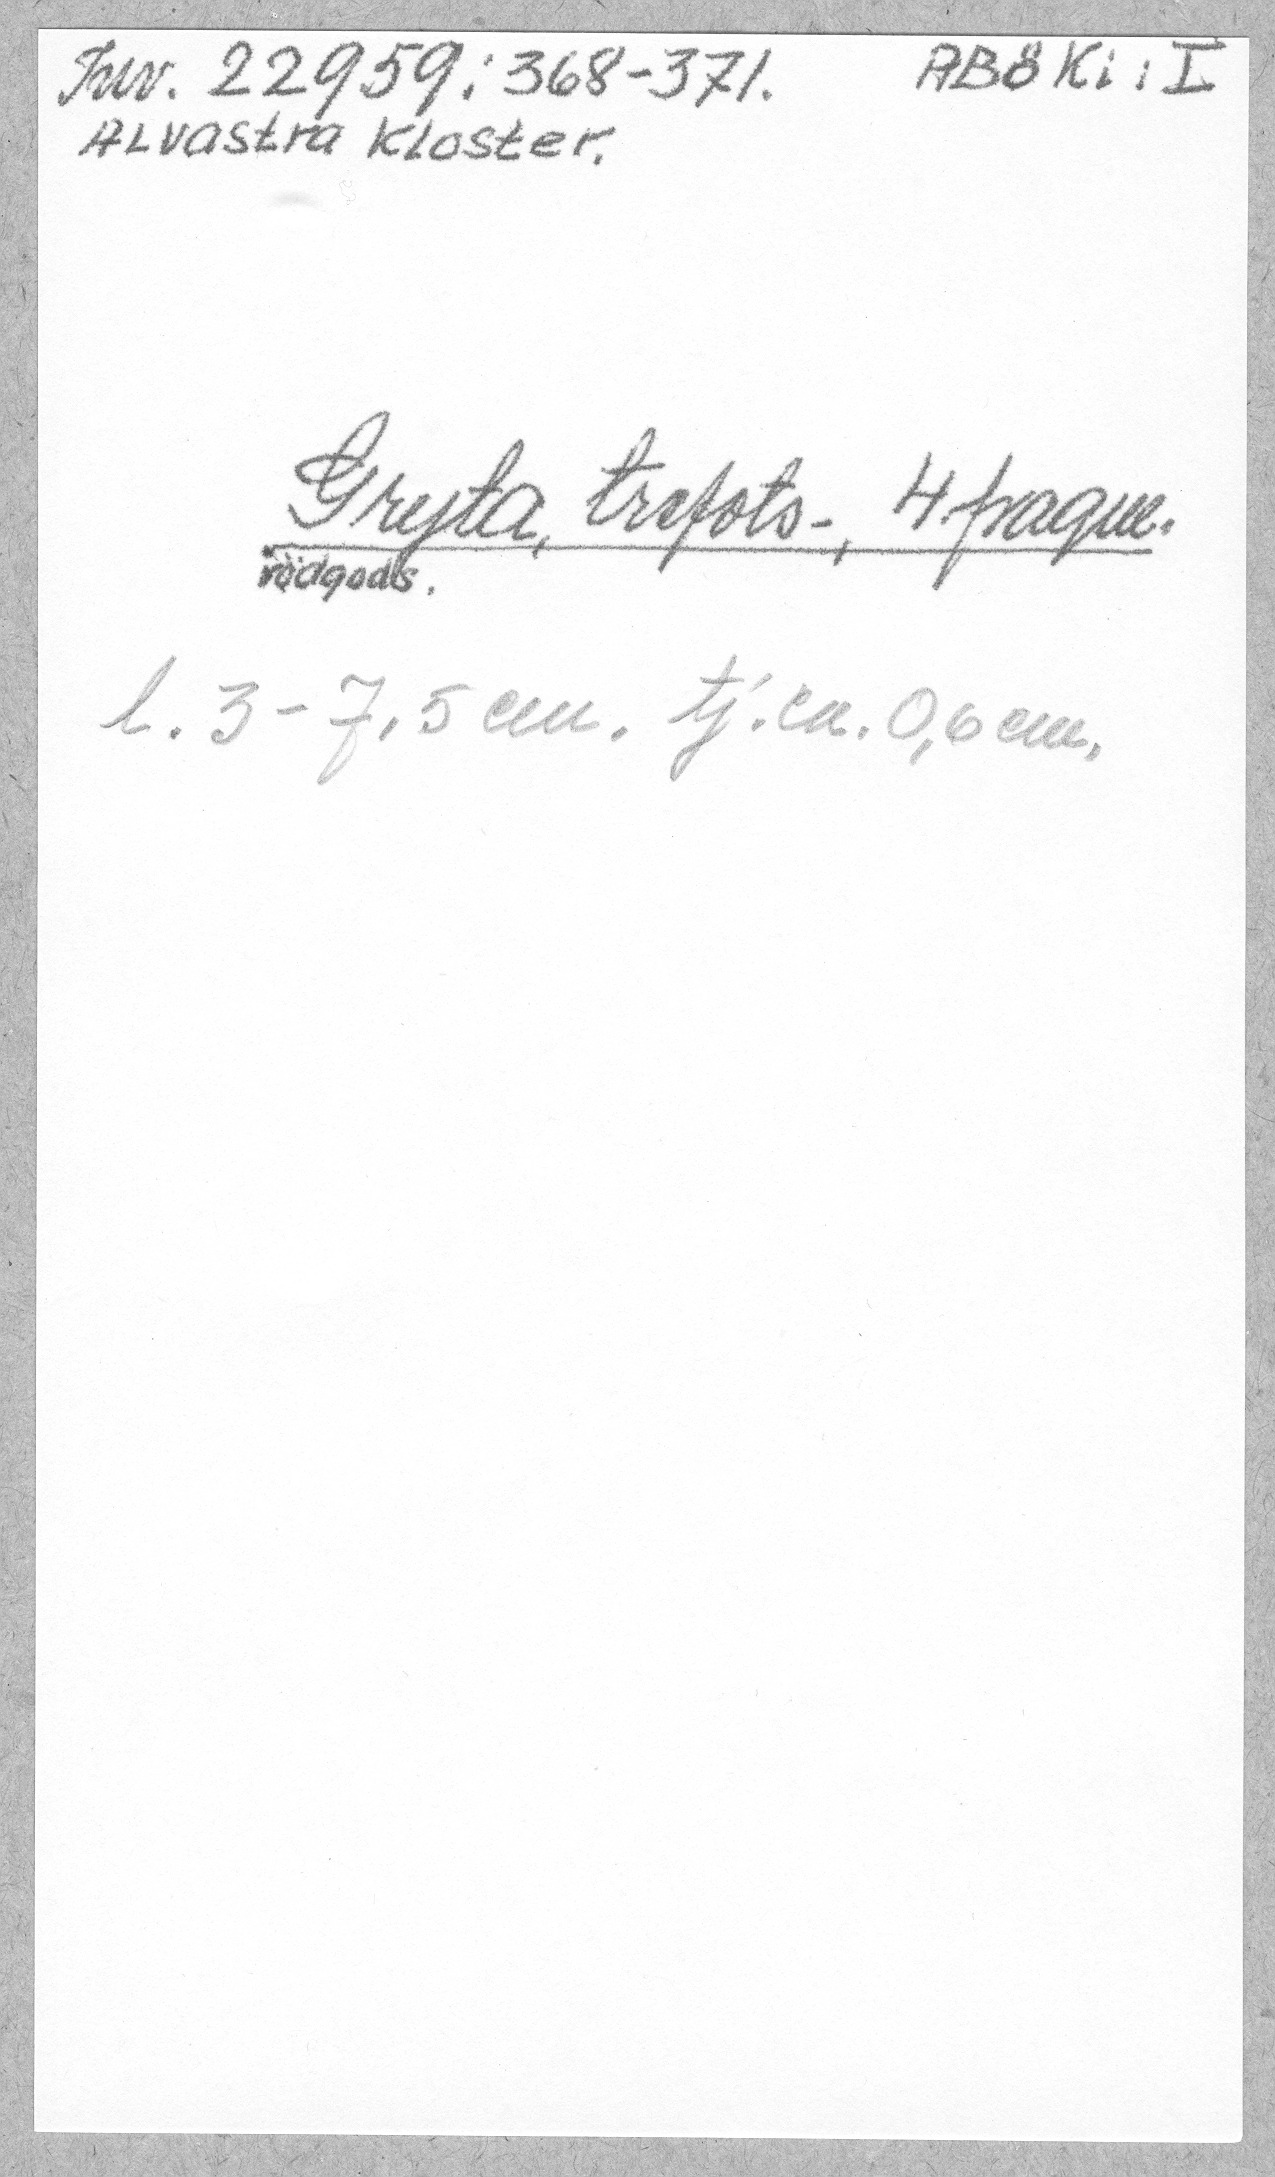 Inv. 22959:368-371. ABÖKi:I
Alvastra Kloster.
Gryta, trefots-, 4 fragm.
rödgods.
l. 3-7,5 cm. tj. ca. 0,6 cm.